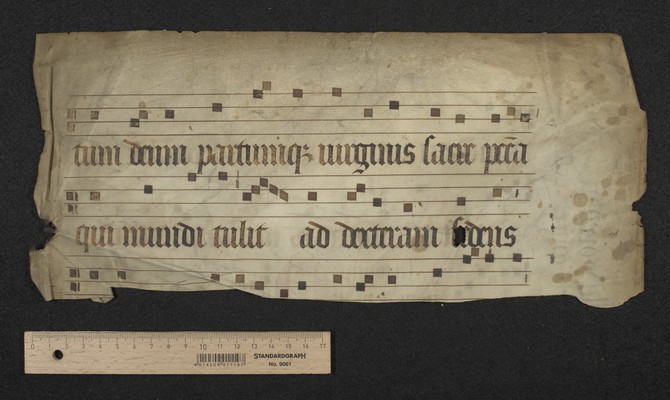 tum deum partumiq; uirginis sacre pcc̄a
qui mundi tulit ad dexteram sedens
0 1 2 3 4 5 6 7 8 9 10 11 12 13 14 15 16 17
STANDARDGRAPH
No. 9061